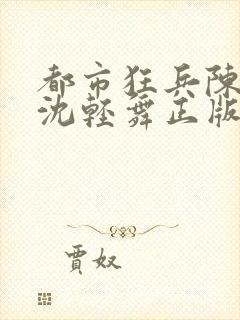 都市狂兵陳
沈輕舞正版
賈奴